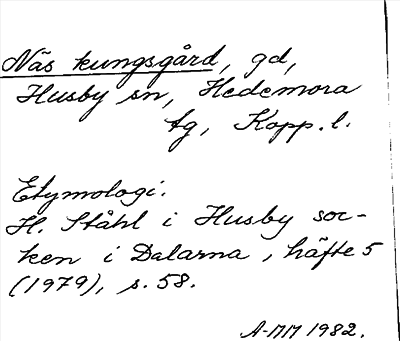 Näs kungsgård, gd,
Husby sn, Hedemora
tg, Kopp. l.
Etymologi.
H. Ståhl i Husby soc-
ken i Dalarna, häfte 5
(1979), s. 58.
A-MM 1982.